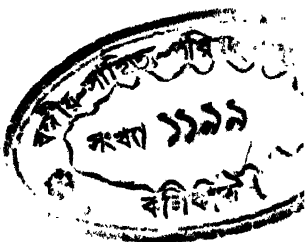 বঙ্গীয় সাহিত্য পরিষৎ
সংখ্যা ১১৯৯
কলিকাতা